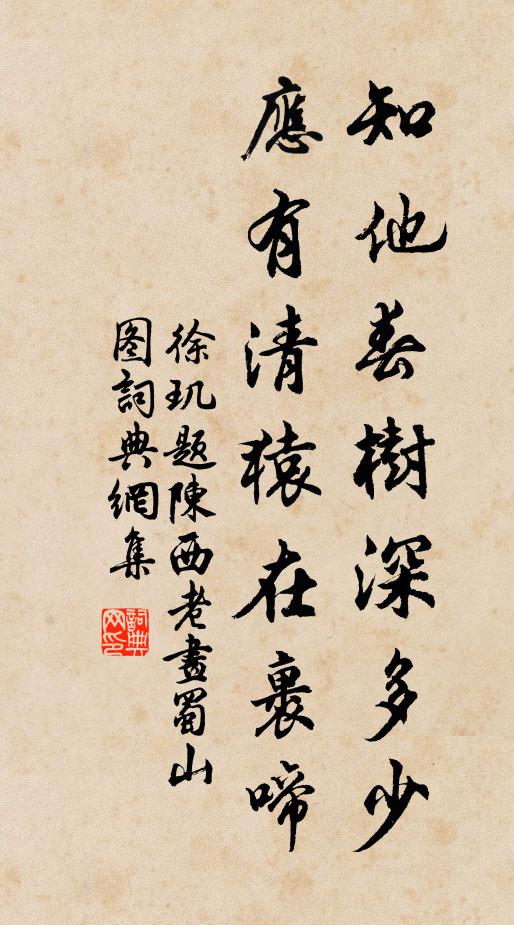 知他春樹深多少
應有清猿在裏啼
徐玑题陳西老畫蜀山
图詞典網集
詞典网印